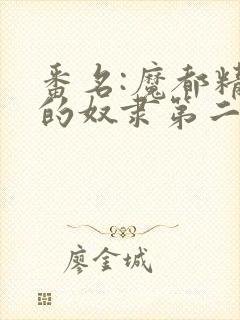 番名:魔都精
的奴隶第二
廖金城